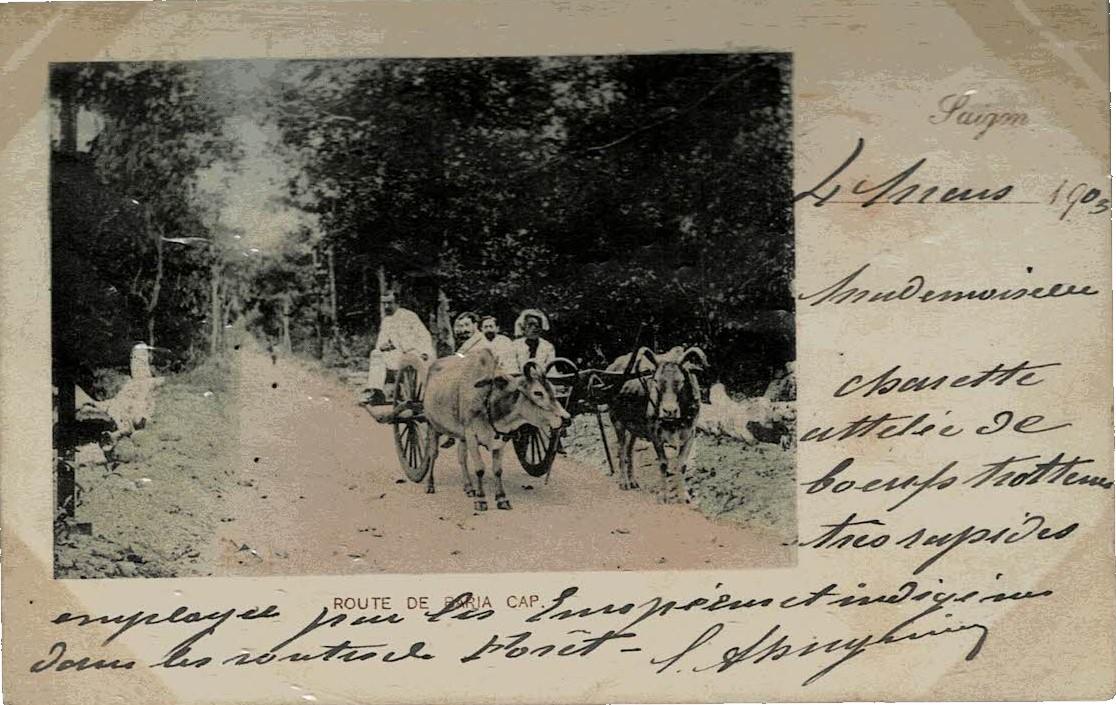 Saigon
4 Mars 1903
Mademoiselle
charette
attelée de
boeufs trotteurs
très rapides
ROUTE DE BARIA CAP.
employée par les Européens et indigènes
dans les routes de Forêt -